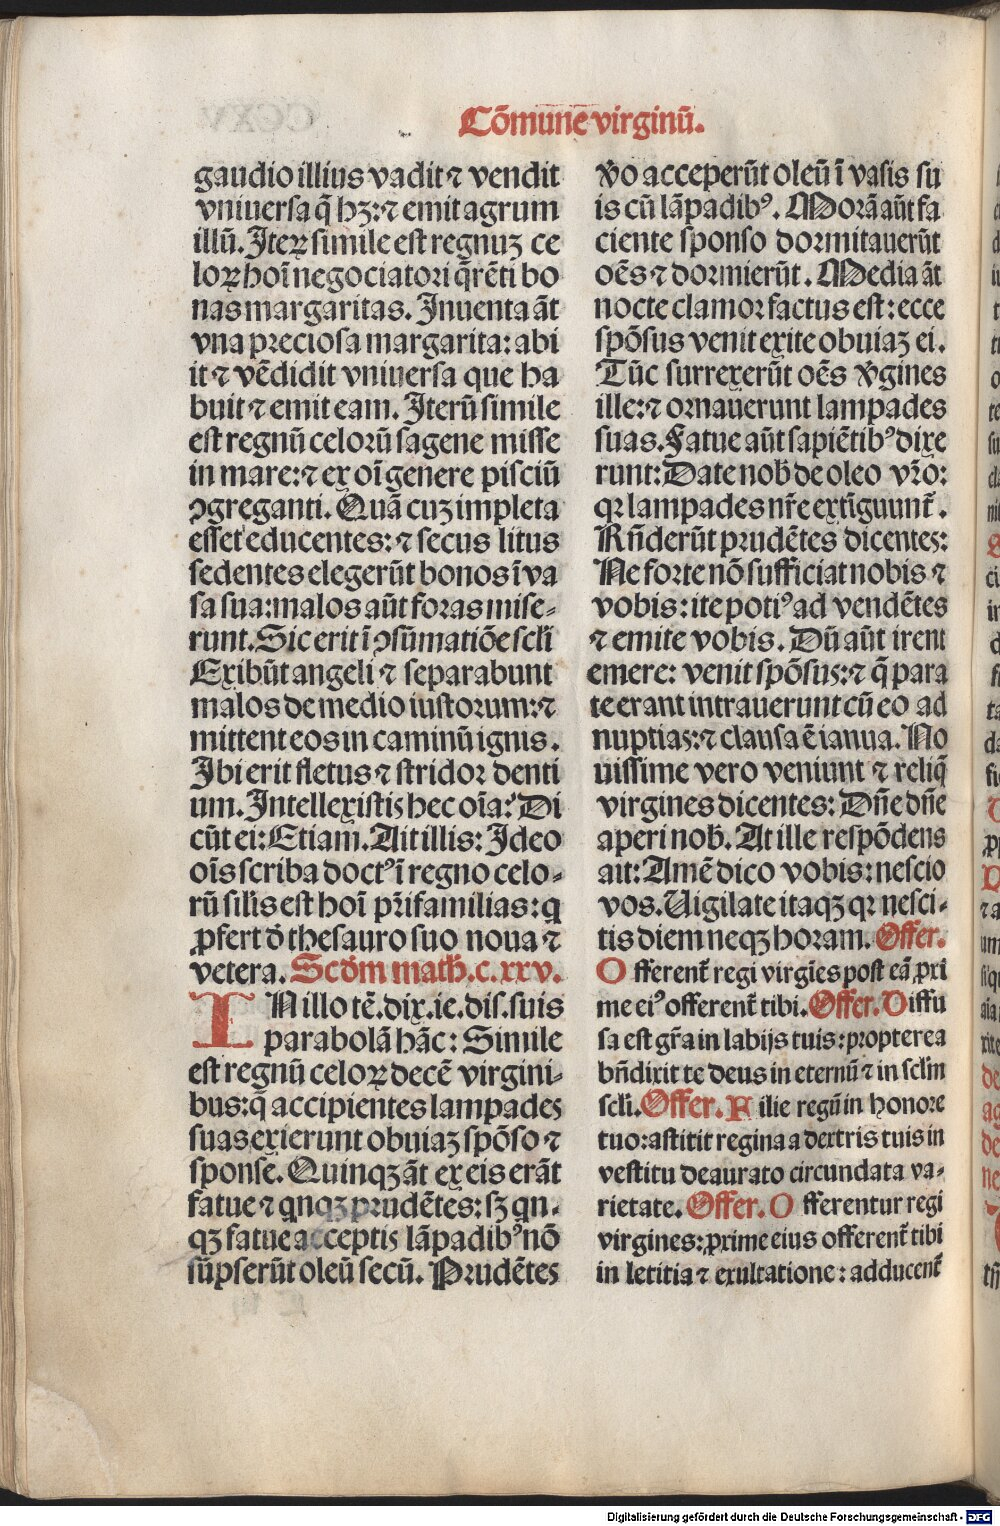 Cōmune virginū.
gaudio illius vadit ⁊ vendit
vniuersa q̄ hꝫ: ⁊ emit agrum
illū. Iteꝝ simile est regnuꝫ ce
loꝝ hoī negociatori q̄rēti bo
nas margaritas. Inuenta āt
vna preciosa margarita: abi
it ⁊ vēdidit vniuersa que ha
buit ⁊ emit eam. Iterū simile
est regnū celorū sagene misse
in mare: ⁊ ex oī genere pisciū
ꝯgreganti. Quā cuꝫ impleta
esset educentes: ⁊ secus litus
sedentes elegerūt bonos ī va
sa sua: malos aūt foras mise-
runt. Sic erit ī ꝯsūmatiōe scl̄i
Exibūt angeli ⁊ separabunt
malos de medio iustorum: ⁊
mittent eos in caminū ignis.
Ibi erit fletus ⁊ stridor denti
um. Intellexistis hec oīa? Di
cūt ei: Etiam. Ait illis: Ideo
oīs scriba doctꝰ ī regno celo-
rū sil̄is est hoī pr̄ifamilias: q
ꝓfert d̄ thesauro suo noua ⁊
vetera. Scd̄m math̄. c. xxv.
IN illo tē. dix. ie. dis. suis
parabolā hāc: Simile
est regnū celoꝝ decē virgini-
bus: q̄ accipientes lampades
suas exierunt obuiaꝫ spōso ⁊
sponse. Quinqꝫ āt ex eis erāt
fatue ⁊ qnqꝫ prudētes: sꝫ qn-
qꝫ fatue acceptis lāpadibꝰ nō
sūpserūt oleū secū. Prudētes
v̄o acceperūt oleū ī vasis su
is cū lāpadibꝰ. Morā aūt fa
ciente sponso dormitauerūt
oēs ⁊ dormierūt. Media āt
nocte clamor factus est: ecce
spōsus venit exite obuiaꝫ ei.
Tūc surrexerūt oēs v̄gines
ille: ⁊ ornauerunt lampades
suas. Fatue aūt sapiētibꝰ dixe
runt: Date nob̄ de oleo vr̄o:
qꝛ lampades nr̄e extīguunt̄.
Rn̄derūt prudētes dicentes:
Ne forte nō sufficiat nobis ⁊
vobis: ite potiꝰ ad vendētes
⁊ emite vobis. Dū aūt irent
emere: venit spōsus: ⁊ q̄ para
te erant intrauerunt cū eo ad
nuptias: ⁊ clausa ē ianua. No
uissime vero veniunt ⁊ reliq̄
virgines dicentes: Dn̄e dn̄e
aperi nob̄. At ille respōdens
ait: Amē dico vobis: nescio
vos. Uigilate itaqꝫ qꝛ nesci-
tis diem neqꝫ horam. Offer.
O fferent̄ regi virgīes post eā ꝓxi
me eiꝰ offerent̄ tibi. Offer. D iffu
sa est gr̄a in labijs tuis: propterea
bn̄dixit te deus in eternū ⁊ in scl̄m
scl̄i. Offer. F ilie regū in honore
tuo: astitit regina a dextris tuis in
vestitu deaurato circundata va-
rietate. Offer. O fferentur regi
virgines: ꝓxime eius offerent̄ tibi
in letitia ⁊ exultatione: adducent̄
Digitalisierung gefördert durch die Deutsche Forschungsgemeinschaft - DFG